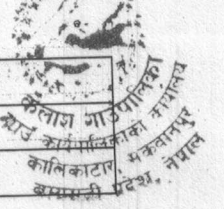 कैलाश गाउँपालिका
गाउँ कार्यपालिकाको कार्यालय
कालिकाटार मकवानपुर
बागमती प्रदेश, नेपाल